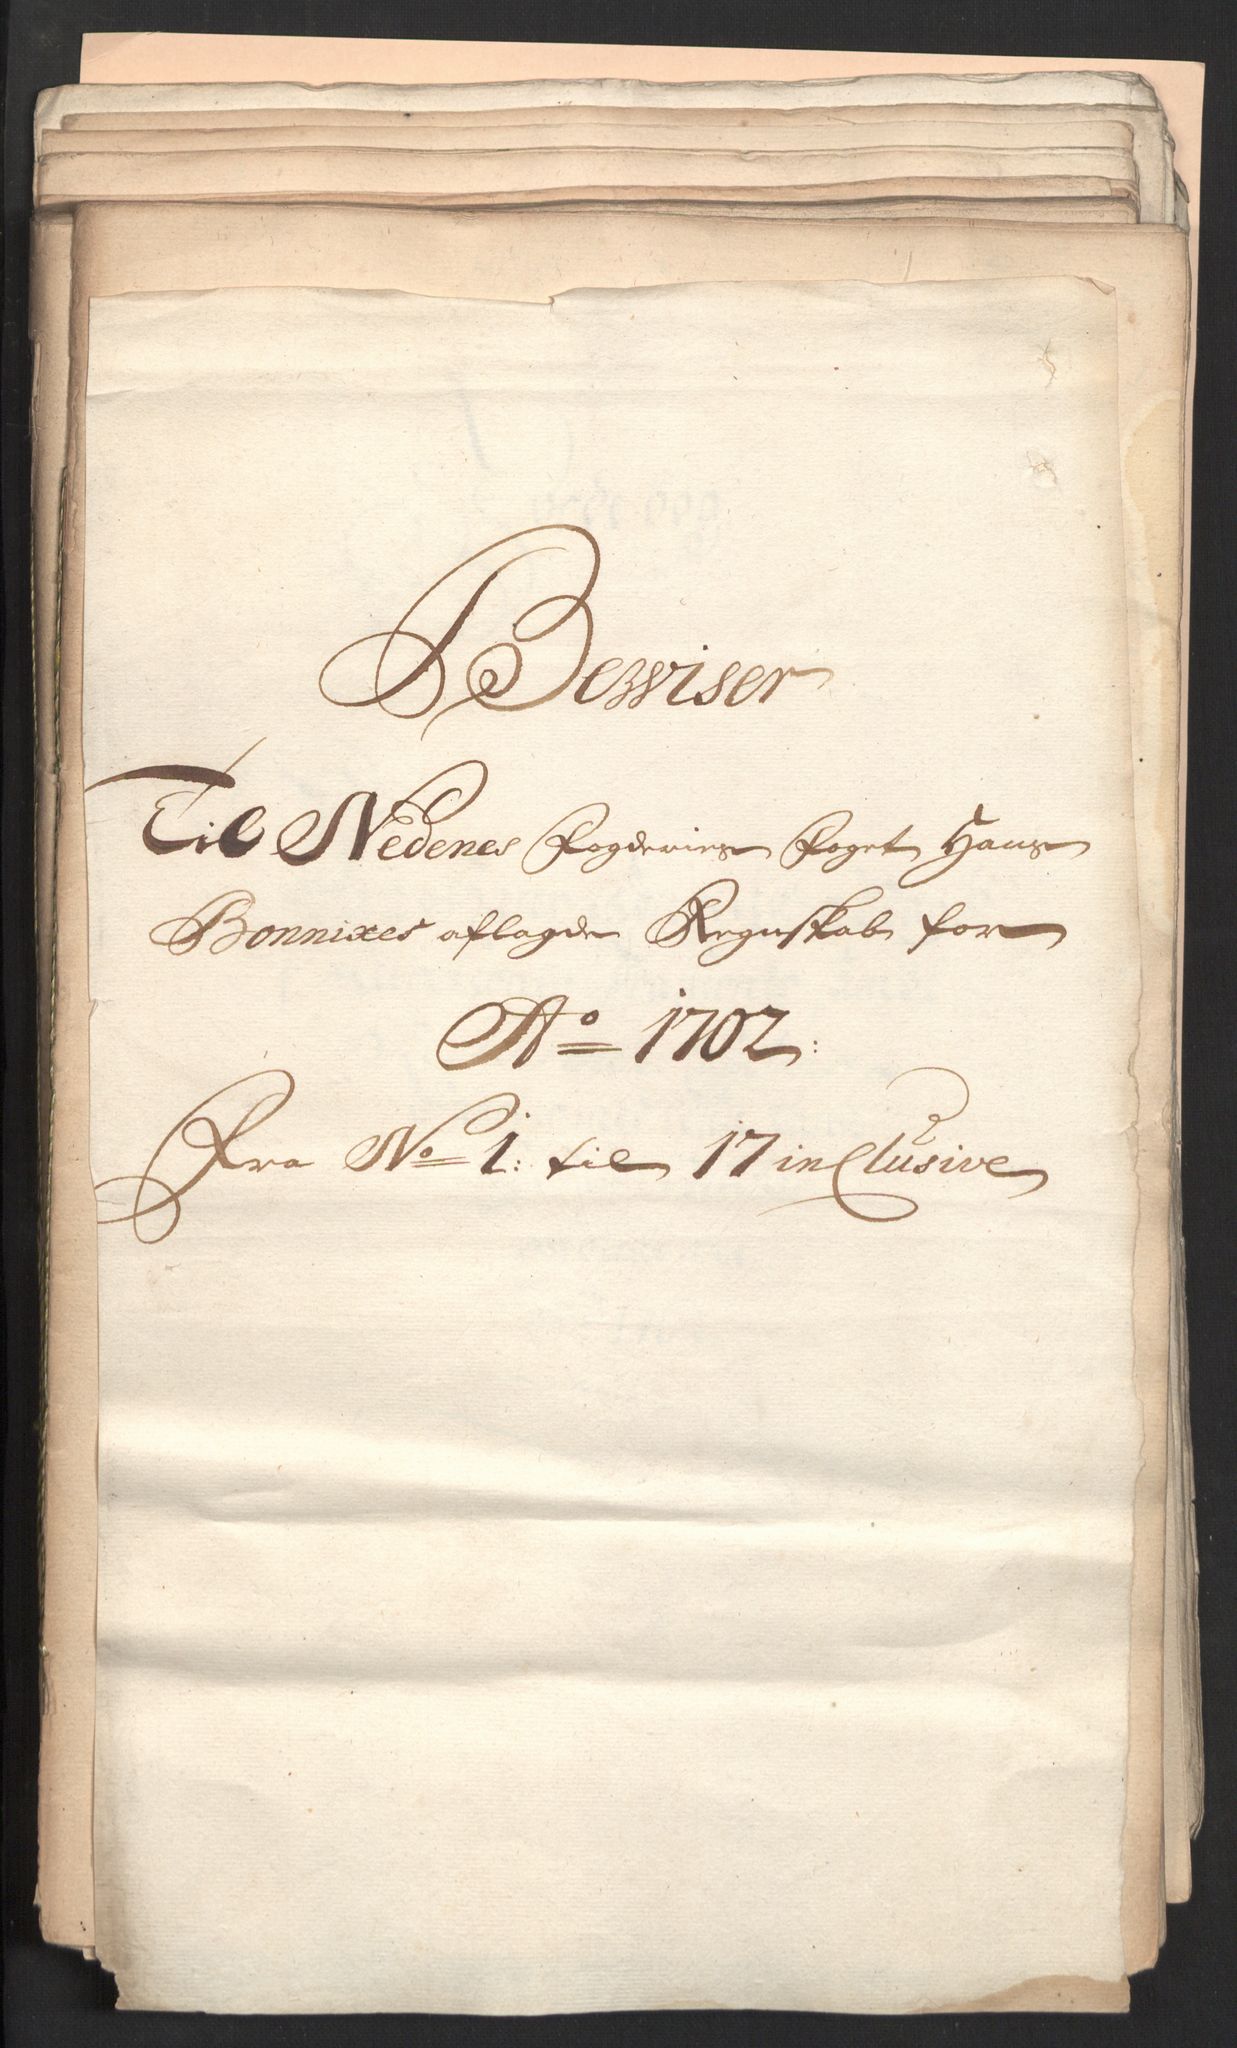 Bewiser
Til Nedenes Fogderies Foget Hans
Bonnixes aflagde Regnskab for
Ao 1702:
Fra No 1: til 17 inclusive